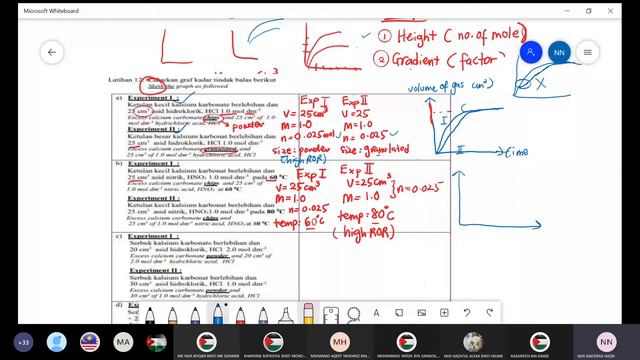 Microsoft Whiteboard
① Height ( no. of mole)
② Gradient ( factor
Latihan 1.2
Lakarkan graf kadar tindak balas berikut
Sketch the graph as followed
volume of gas (cm³)
a) Experiment I :
Ketulan kecil kalsium karbonat berlebihan dan
25 cm³ asid hidroklorik, HCl 1.0 mol dm⁻³
Excess calcium carbonate chips and 25 cm³ of 1.0
mol dm⁻³ hydrochloric acid, HCl
powder
Experiment II :
Ketulan besar kalsium karbonat berlebihan dan
25 cm³ asid hidroklorik, HCl 1.0 mol dm⁻³
Excess calcium carbonate granulated and
25 cm³ of 1.0 mol dm⁻³ hydrochloric acid, HCl
Exp I
V = 25
M = 1.0
n = 0.025 mol
size: powder
(high ROR)
Exp II
V = 25
M = 1.0
n = 0.025
size: granulated
I
II
time
X
b) Experiment I :
Ketulan kecil kalsium karbonat berlebihan dan
25 cm³ asid nitrik, HNO₃ 1.0 mol dm⁻³ pada 60 °C
Excess calcium carbonate chips and 25 cm³ of
1.0 mol dm⁻³ nitric acid, HNO₃ at 60 °C
Experiment II :
Ketulan kecil kalsium karbonat berlebihan dan
25 cm³ asid nitrik, HNO₃ 1.0 mol dm⁻³ pada 80 °C
Excess calcium carbonate chips and
25 cm³ of 1.0 mol dm⁻³ nitric acid, HNO₃ at 80 °C
Exp I
V = 25cm³
M = 1.0
n = 0.025
temp: 60°C
Exp II
V = 25cm³
M = 1.0
n = 0.025
temp: 80°C
(high ROR)
c) Experiment I :
Serbuk kalsium karbonat berlebihan dan
20 cm³ asid hidroklorik, HCl 2.0 mol dm⁻³
Excess calcium carbonate powder and 20 cm³ of
2.0 mol dm⁻³ hydrochloric acid, HCl
Experiment II :
Serbuk kalsium karbonat berlebihan dan
30 cm³ asid hidroklorik, HCl 1.0 mol dm⁻³
Excess calcium carbonate powder and
30 cm³ of 1.0 mol dm⁻³ hydrochloric acid, HCl
d)
NN
+33
MA
MH
NN